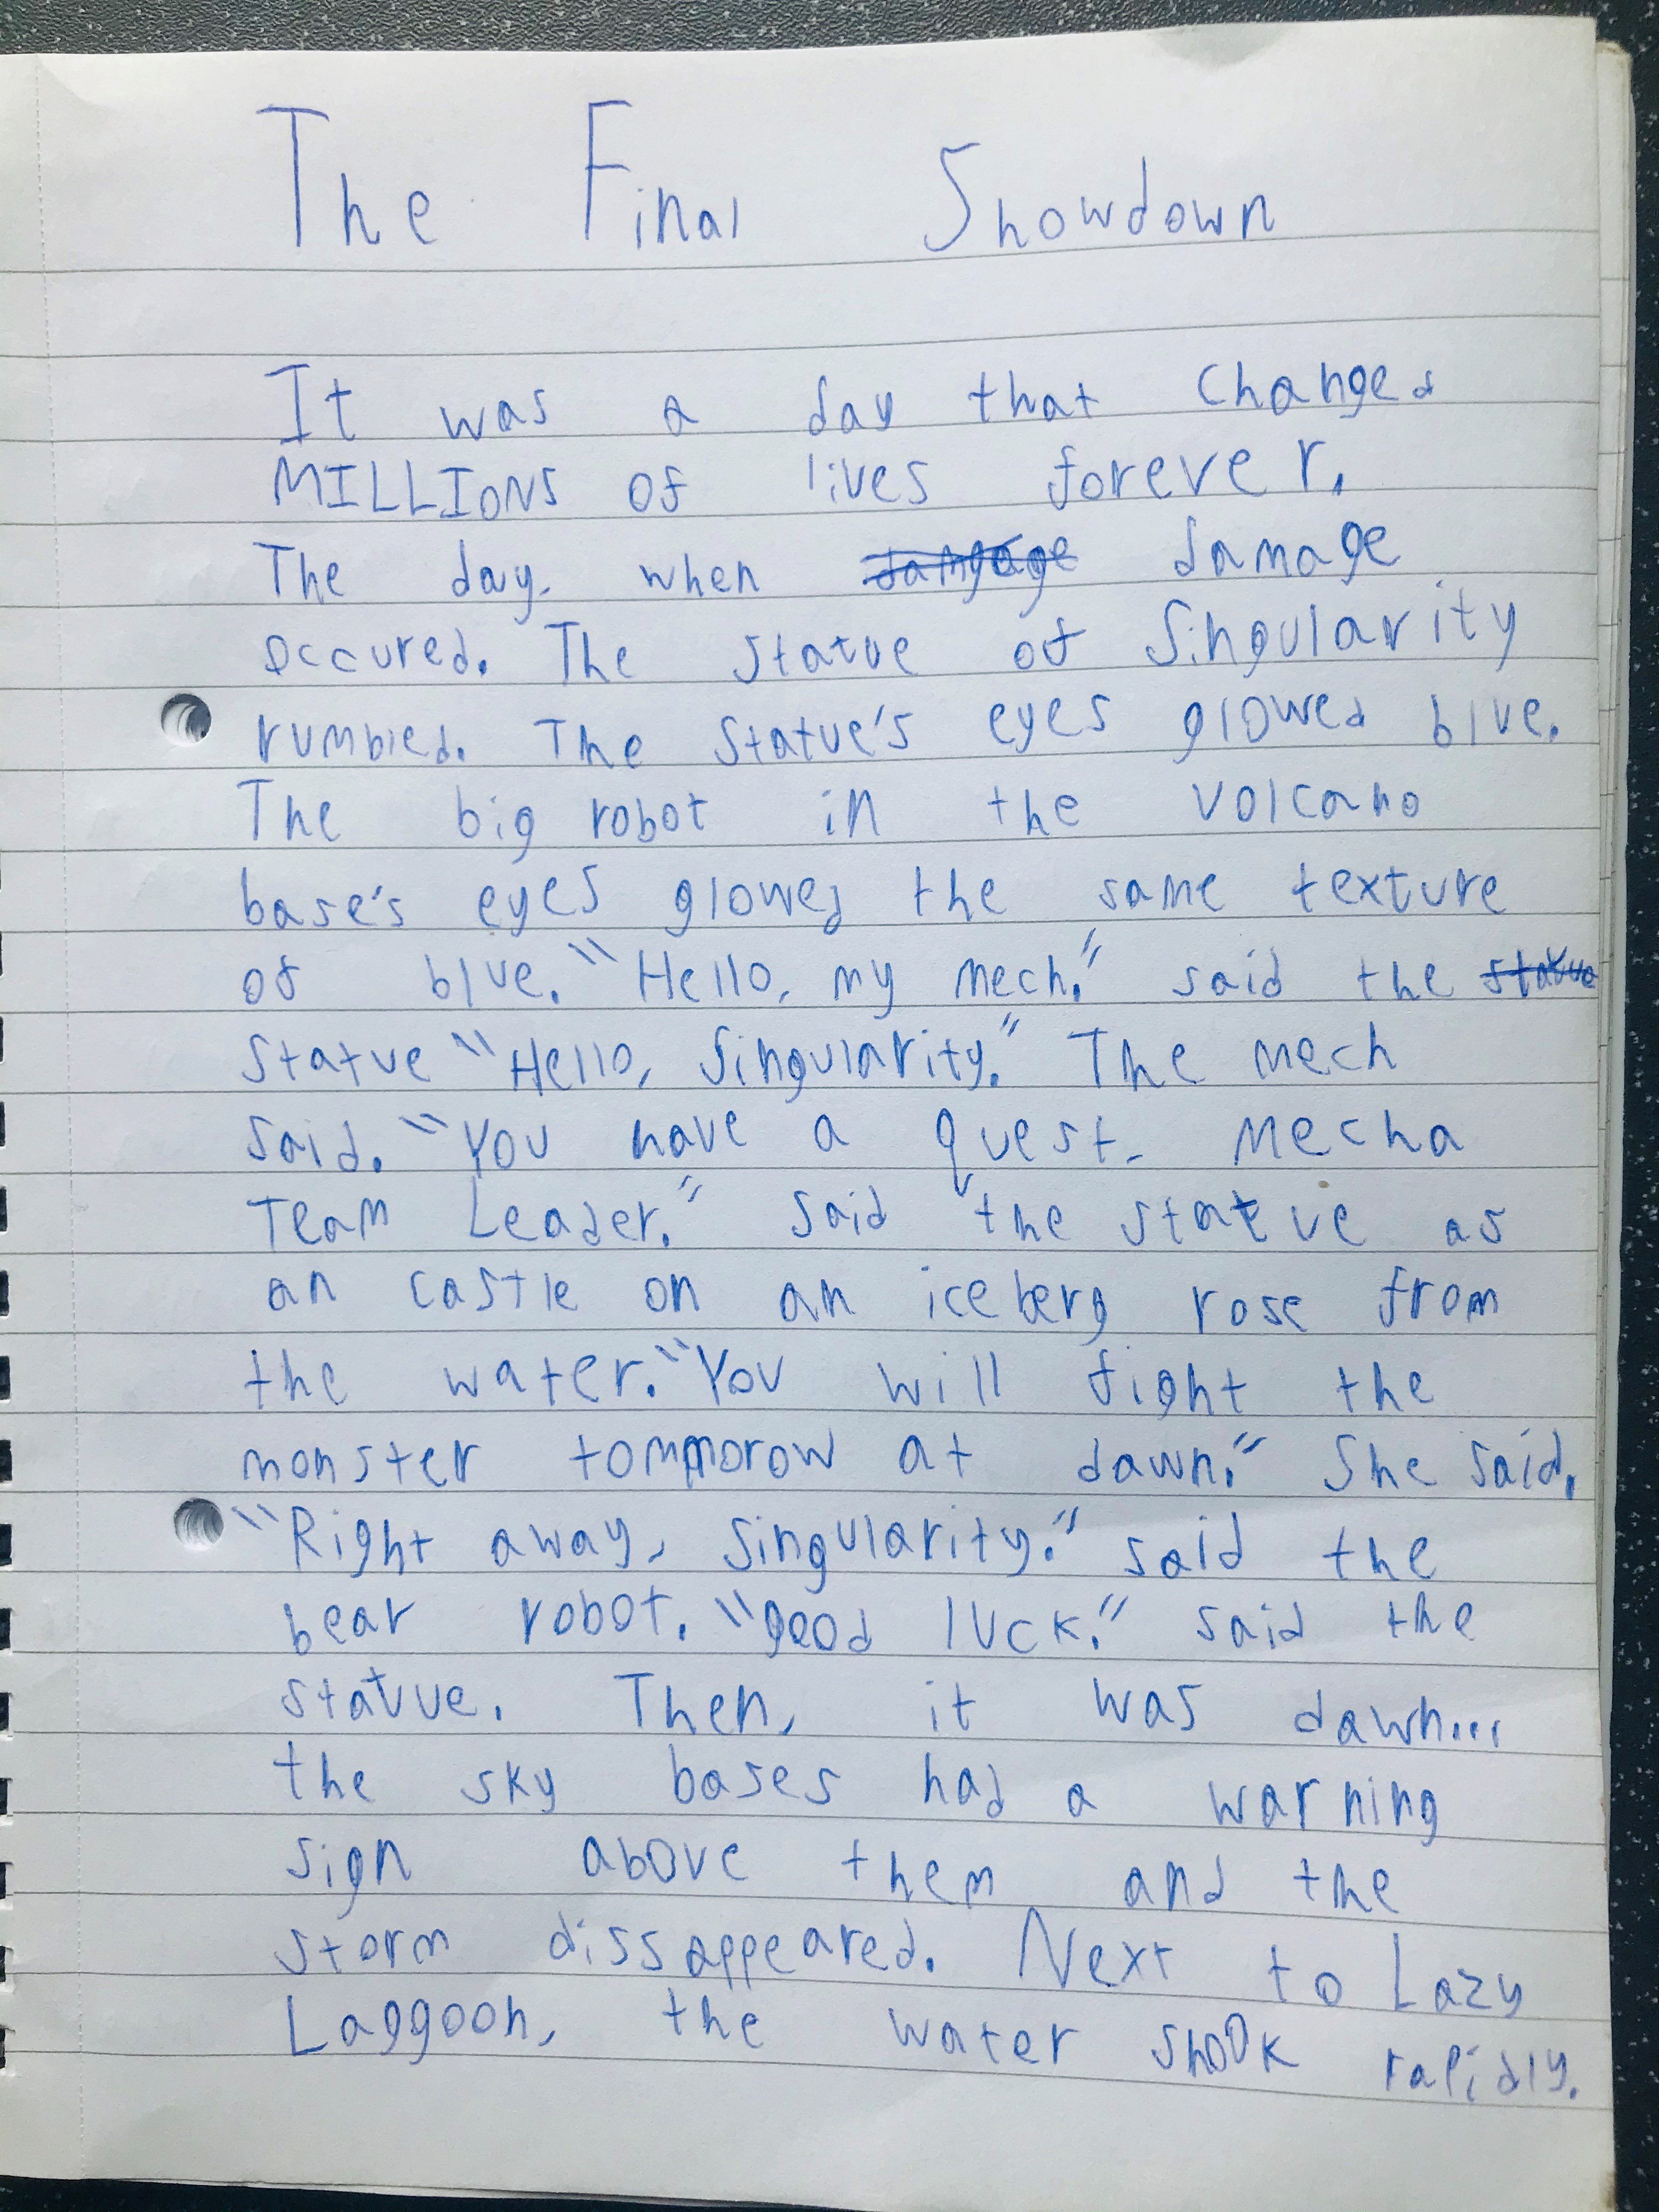 The Final Showdown
It was a day that changed
MILLIONS of lives forever.
The day. when damage
occured. The statue of Singularity
rumbled. The statue's eyes glowed blue.
The big robot in the volcano
base's eyes glowed the same texture
of blue. "Hello, my mech." said the statue
statue "Hello, Singularity." The mech
said. "You have a quest. Mecha
Team Leader." said the statue as
an castle on an iceberg rose from
the water. "You will fight the
monster tommorow at dawn." She said.
"Right away, Singularity." said the
bear robot. "good luck." said the
statue. Then, it was dawn...
the sky bases had a warning
sign above them and the
storm dissappeared. Next to Lazy
Laggoon, the water shook rapidly.